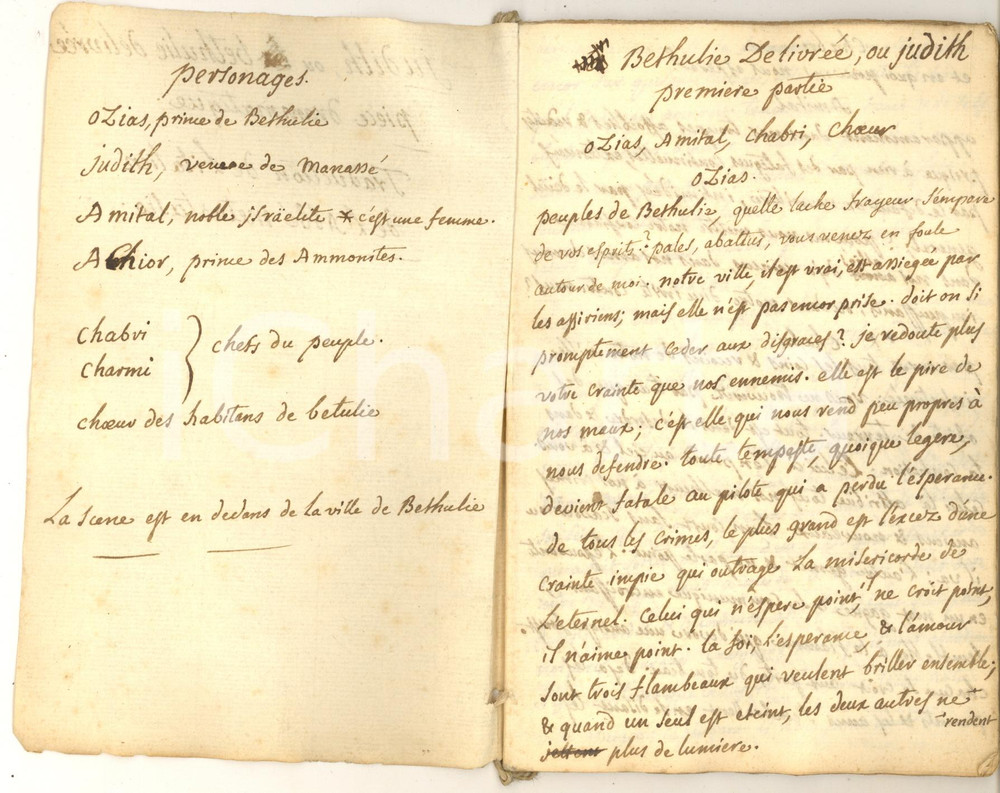 personages.
oZias, prince de Bethulie
judith, veuve de Manassé
Amital, noble jsräelite * c'est une femme.
AChior, prince des Ammonites.
Chabri
Charmi
chefs du peuple.
chœur des habitans de betulie
La scene est en dedans de la ville de Bethulie
Bethulie Delivrée, ou judith
premiere partie
oZias, Amital, Chabri, Chœur
oZias.
peuples de Bethulie, quelle lache frayeur s'empare
de vos esprits? pales, abattus, vous venez en foule
autour de moi. notre ville, il est vrai, est assiegée par
les assiriens; mais elle n'est pas encor prise. doit on si
promptement ceder aux disgraces? je redoute plus
votre crainte que nos ennemis. elle est le pire de
nos maux; c'est elle qui nous rend peu propres à
nous defendre. toute tempeste, quoique legere,
devient fatale au pilote qui a perdu l'esperance.
de tous les crimes, le plus grand est l'excez d'une
crainte impie qui outrage La misericorde de
L'eternel. Celui qui n'espere point, ne croit point,
il n'aime point. la foi, l'esperance & l'amour
sont trois flambeaux qui veulent briller ensemble;
& quand un seul est eteint, les deux autres ne
rendent
jettent plus de lumiere.